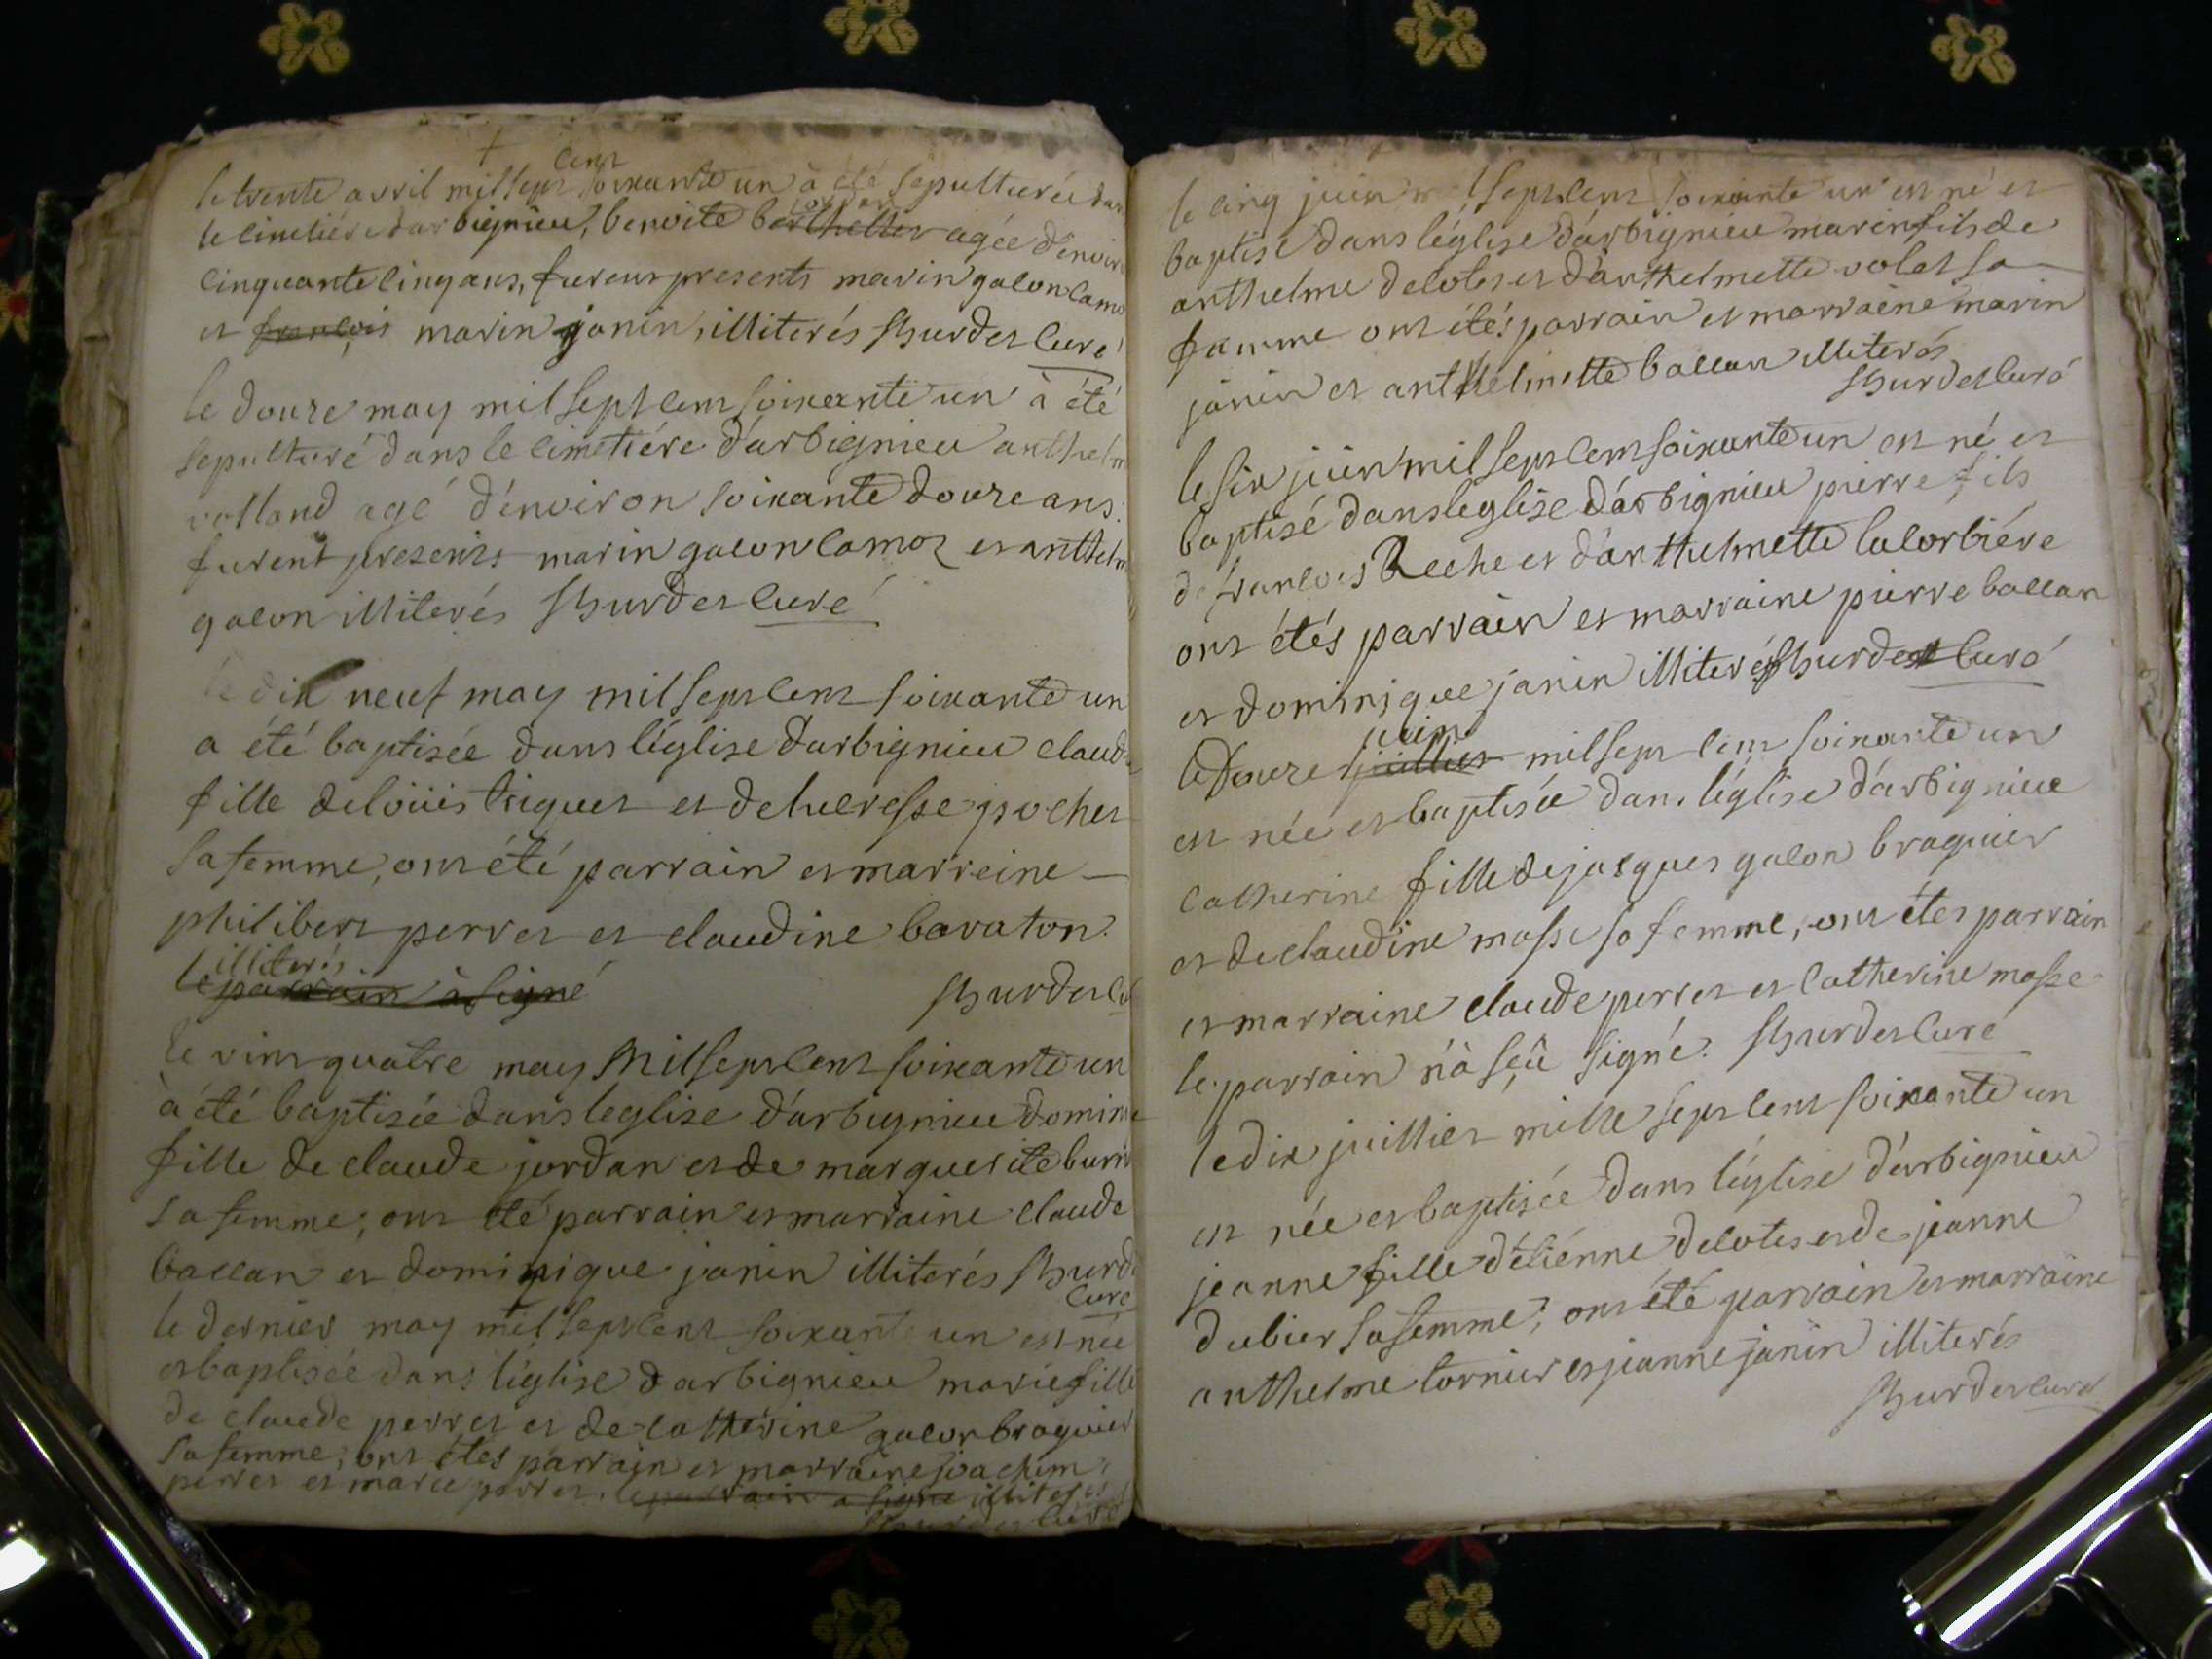 +
cent
le trente avril mil sept soixante un à été sepulturée dans
jordan
le cimetiére darbignieu, benoite berthettier agée d'environ
cinquante cinq ans, furent presents marin galon camo
et françois marin janin, illiterés hurdet curé
le douze may mil sept cent soixante un à été
sepulturé dans le cimetiére d'arbignieu anthelm
volland agé d'environ soixante douze ans.
furent presents marin galon camoz et anthelm
galon illiterés hurdet curé
le dix neuf may mil sept cent soixante un
a été baptisée dans l'église darbignieu claud
fille de loüis triquet et de lucresse pochet
sa femme, ont été parrain et marreine
philibert perret et claudine bavaton.
illiterés
le parrain à signé hurdet cu
le vint quatre may mil sept cent soixante un
à été baptisée dans leglise d'arbignieu domini
fille de claude jordan et de marguerite burn
sa femme; ont été parrain et marraine claude
ballan et dominique janin illiterés hurd
curé
le dernier may mil sept cent soixante un est née
et baptisée dans l'église darbignieu marie fille
de claude perret et de catherine galon braguier
sa femme; ont étés parrain et marraine joachim
perret et marie perret. le parrain a signé illiterés
hurdet curé
le cinq juin mil sept cent soixante un est né et
baptisé dans l'église d'arbignieu marin fils de
anthelme delotes et d'anthelmette volet sa
femme ont étés parrain et marraine marin
janin et anthelmette ballan illiterés
hurdet curé
le six juin mil sept cent soixante un est né et
baptisé dans leglise d'arbignieu pierre fils
de françois Reche et d'anthelmette lacorbiére
ont étés parrain et marraine pierre ballan
et dominique janin illiterés hurdet curé
juin
le douze juilliet mil sept cent soixante un
est née et baptisée dans l'église d'arbignieu
catherine fille de jacques galon braguier
et de claudine masse sa femme, ont étés parrain
et marraine claude perret et catherine masse
le parrain n'à sçû signé. hurdet curé
le dix juilliet mille sept cent soixante un
est née et baptisée dans l'église d'arbignieu
jeanne fille d'etiénne delotes et de jeanne
dubier sa femme; ont été parrain et marraine
anthelme tornier et jeanne janin illiterés
hurdet curé